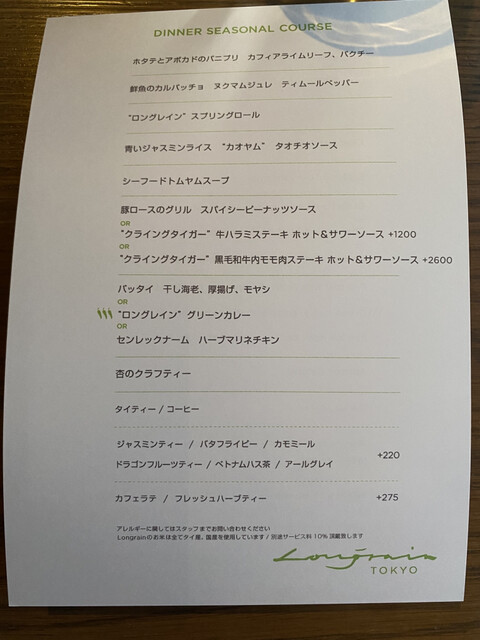 DINNER SEASONAL COURSE
ホタテとアボカドのパニプリ　カフィアライムリーフ、パクチー
鮮魚のカルパッチョ　ヌクマムジュレ　ティムールペッパー
"ロングレイン" スプリングロール
青いジャスミンライス　"カオヤム"　タオチオソース
シーフードトムヤムスープ
豚ロースのグリル　スパイシーピーナッツソース
OR
"クライングタイガー" 牛ハラミステーキ ホット＆サワーソース +1200
OR
"クライングタイガー" 黒毛和牛内モモ肉ステーキ ホット＆サワーソース +2600
パッタイ　干し海老、厚揚げ、モヤシ
OR
"ロングレイン" グリーンカレー
OR
センレックナーム　ハーブマリネチキン
杏のクラフティー
タイティー / コーヒー
ジャスミンティー / バタフライピー / カモミール
ドラゴンフルーツティー / ベトナムハス茶 / アールグレイ
+220
カフェラテ / フレッシュハーブティー +275
アレルギーに関してはスタッフまでお問い合わせください
Longrainのお米は全てタイ産、国産を使用しています / 別途サービス料 10% 頂戴致します
Longrain
TOKYO